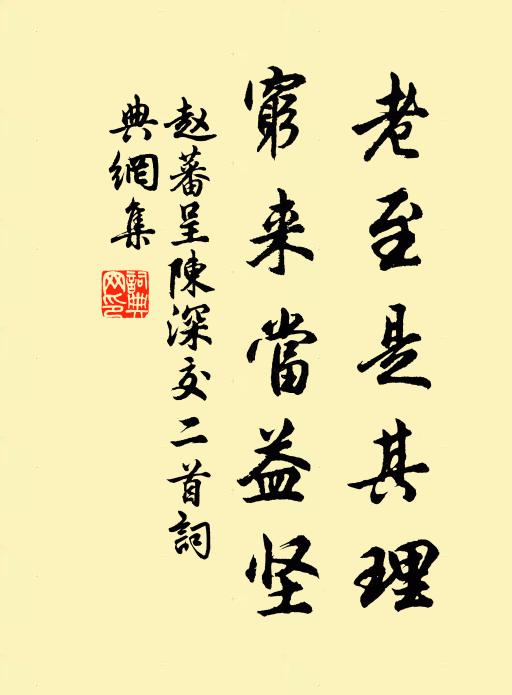 老至是其理
窮来當益坚
赵蕃呈陳深交二首詞
典網集
詞典網印